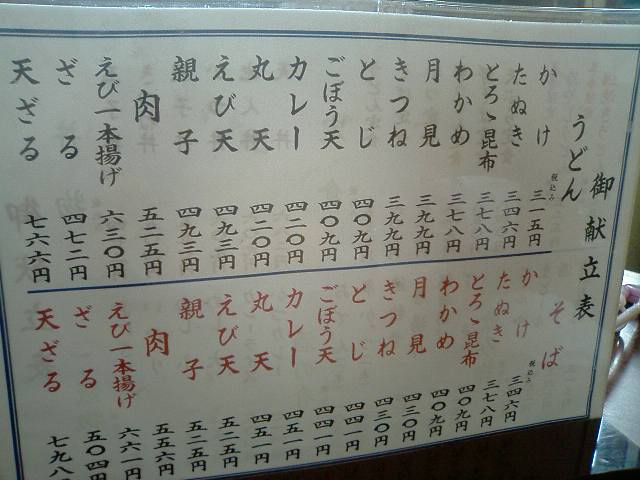 御献立表
うどん
かけ 税込み 三一五円
たぬき 三四六円
とろゝ昆布 三七八円
わかめ 三七八円
月見 三九九円
きつね 三九九円
とじ 四〇九円
ごぼう天 四〇九円
カレー 四二〇円
丸天 四二〇円
えび天 四九三円
親子 四九三円
肉 五二五円
えび一本揚げ 六三〇円
ざる 四七二円
天ざる 七六六円
そば
かけ 税込み 三四六円
たぬき 三七八円
とろゝ昆布 四〇九円
わかめ 四〇九円
月見 四三〇円
きつね 四三〇円
とじ 四四一円
ごぼう天 四四一円
カレー 四五一円
丸天 四五一円
えび天 五二五円
親子 五二五円
肉 五五六円
えび一本揚げ 六六一円
ざる 五〇四円
天ざる 七九八